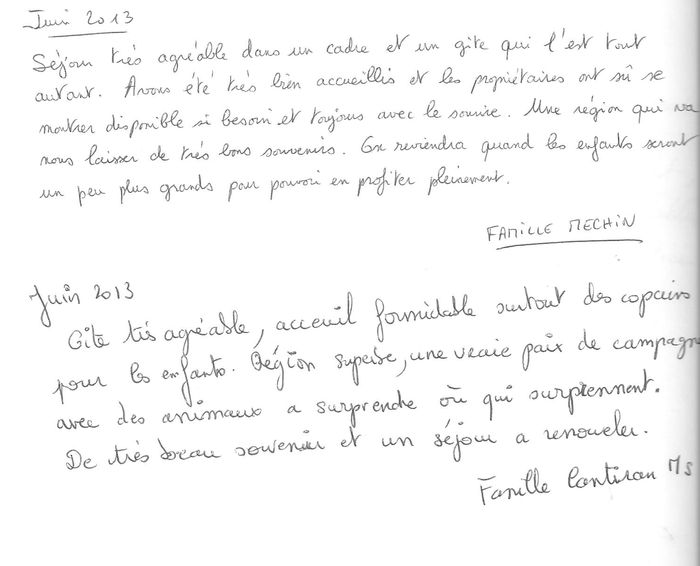 Juin 2013
Séjour très agréable dans un cadre et un gîte qui l'est tout
autant. Avons été très bien accueillis et les propriétaires ont sû se
montrer disponible si besoin et toujours avec le sourire. Une région qui va
nous laisser de très bons souvenirs. On reviendra quand les enfants seront
un peu plus grands pour pouvoir en profiter pleinement.
FAMILLE MECHIN
Juin 2013
Gite très agréable, acceuil formidable surtout des copains
pour les enfants. Région superbe, une vraie paix de campagne
avec des animaux a surprendre où qui surprennent.
De très beau souvenir et un séjour a renouveler.
Famille